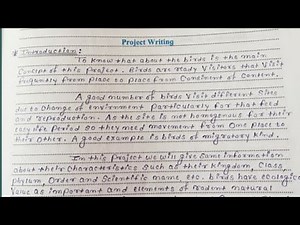 Project Writing
Introduction:
To know that about the birds is the main
concept of this project. Birds are ready visitors that visit
friquntly from place to place from Consinent of Content.
A good number of birds visit different sites
due to change of envirnment Particularly for that feed
and reproduction. As the site is not homogenous for their
easy life Period so they need movement from One place to
ther Other. A good example is birds of migratory kind.
In this project we will give some information
about their characteristics such as their kingdom, Class
phylum, Order and Scientific name etc. birds have ecological
value as important and elements of natural